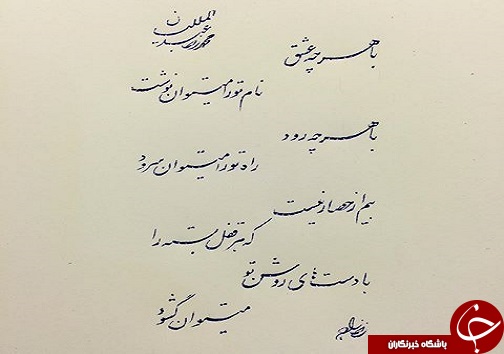 محمدرضا عبدالملکیان
با هر چه عشق
نام تو را میتوان نوشت
با هر چه رود
راه تو را میتوان سرود
بیم از حصار نیست
که هر قفل بسته را
با دستهای روشن تو
میتوان گشود
باشگاه خبرنگاران